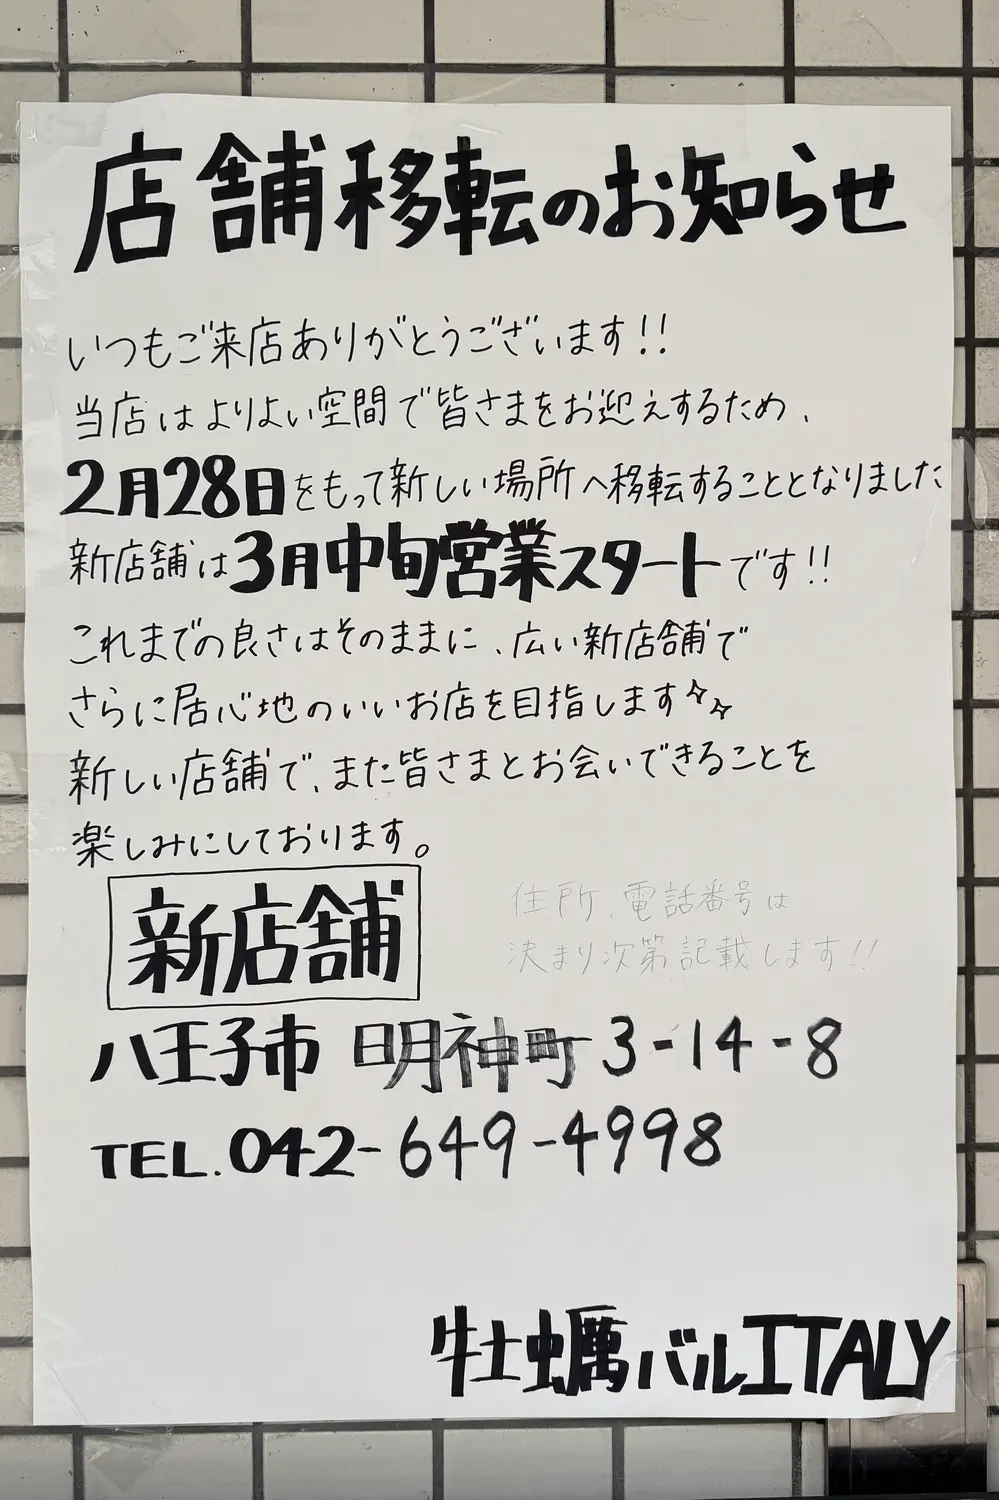 店舗移転のお知らせ
いつもご来店ありがとうございます!!
当店はよりよい空間で皆さまをお迎えするため、
2月28日をもって新しい場所へ移転することとなりました
新店舗は3月中旬営業スタートです!!
これまでの良さはそのままに、広い新店舗で
さらに居心地のいいお店を目指します✨
新しい店舗で、また皆さまとお会いできることを
楽しみにしております。
新店舗
住所、電話番号は
決まり次第記載します!!
八王子市 明神町3-14-8
TEL.042-649-4998
牡蠣バルITALY